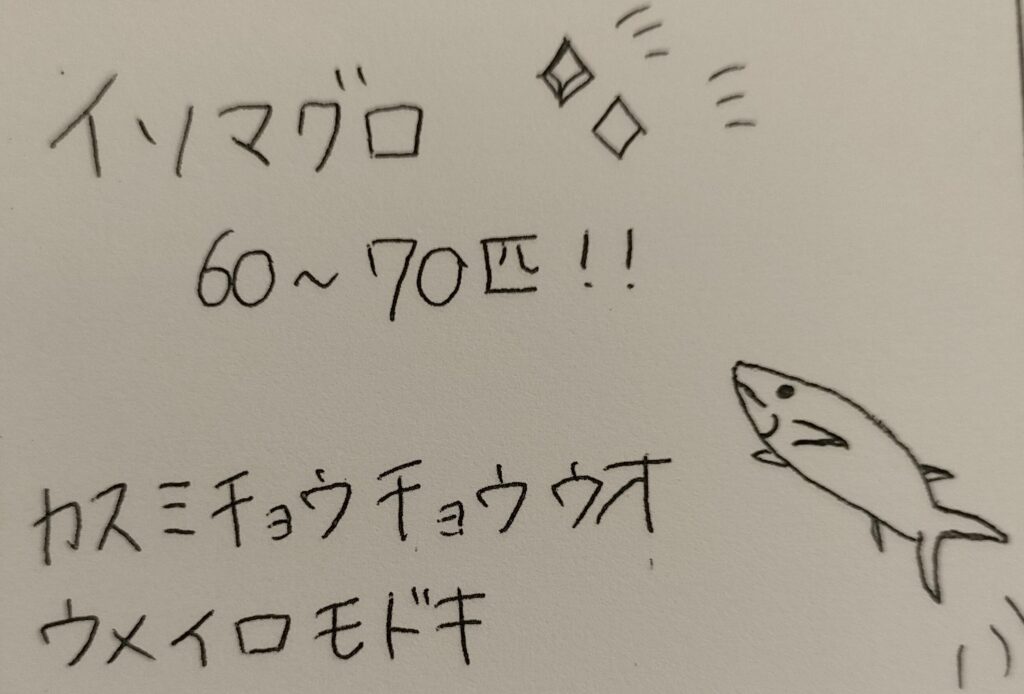 イソマグロ
60~70匹!!
カスミチョウチョウウオ
ウメイロモドキ